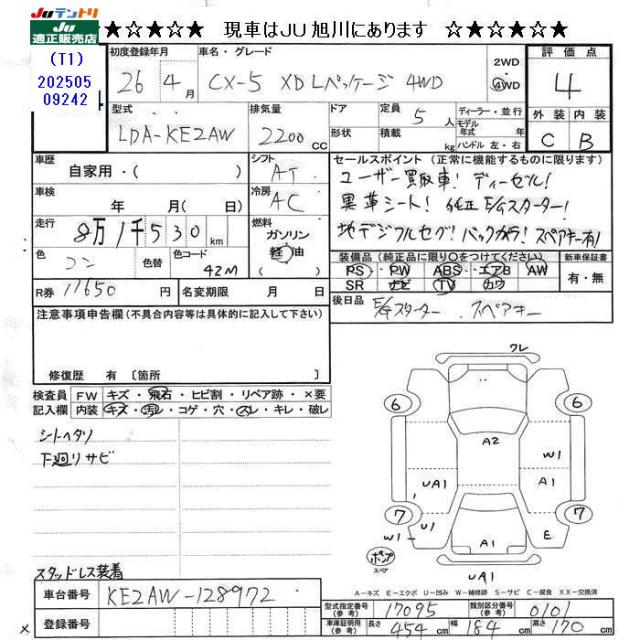 Juテントリ
Ju
適正販売店
★☆★☆★ 現車はJU旭川にあります ☆★☆★☆★
(T1)
202505
09242
初度登録年月
26年 4月
車名・グレード
CX-5 XD Lパッケージ 4WD
2WD
④WD
評価点
4
外装 内装
C B
型式
LDA-KE2AW
排気量
2200 CC
ドア
形状
定員 5人
積載 kg
ディーラー・並行
モデル年式 年式
ハンドル 左・右
車歴
自家用・( )
シフト
AT
車検
年 月( 日)
冷房
AC
走行
8万1千530 km
燃料
ガソリン
軽油
( )
色
コン
色替
色コード
42M
R券 11650 円
名変期限 月 日
セールスポイント(正常に機能するものに限ります)
ユーザー買取車! ディーゼル!
黒革シート! 純正E/gスターター!
地デジフルセグ! バックカメラ! スペアキー有!
装備品(純正品に限り○をつけてください)
PS PW ABS エアB AW
SR ナビ TV カワ
新車保証書
有・無
後日品
E/gスターター スペアキー
注意事項申告欄(不具合内容等は具体的に記入して下さい)
修復歴 有 〔箇所
検査員記入欄
FW キズ・飛石・ヒビ割・リペア跡・×要
内装 キズ・汚レ・コゲ・穴・スレ・キレ・破レ
シートヘタリ
下廻リサビ
スタッドレス装着
車台番号 KE2AW-128972
登録番号
×
ワレ
6
6
A2
W1
UA1
A1
7
7
W1
U1
A1
E
ポンプ
スペア
UA1
A-キズ E-エクボ U-凹み W-補修跡 S-サビ C-腐食 XX-交換済
型式指定番号 17095
類別区分番号 0101
車庫証明用
長さ 454 cm
幅 184 cm
高さ 170 cm